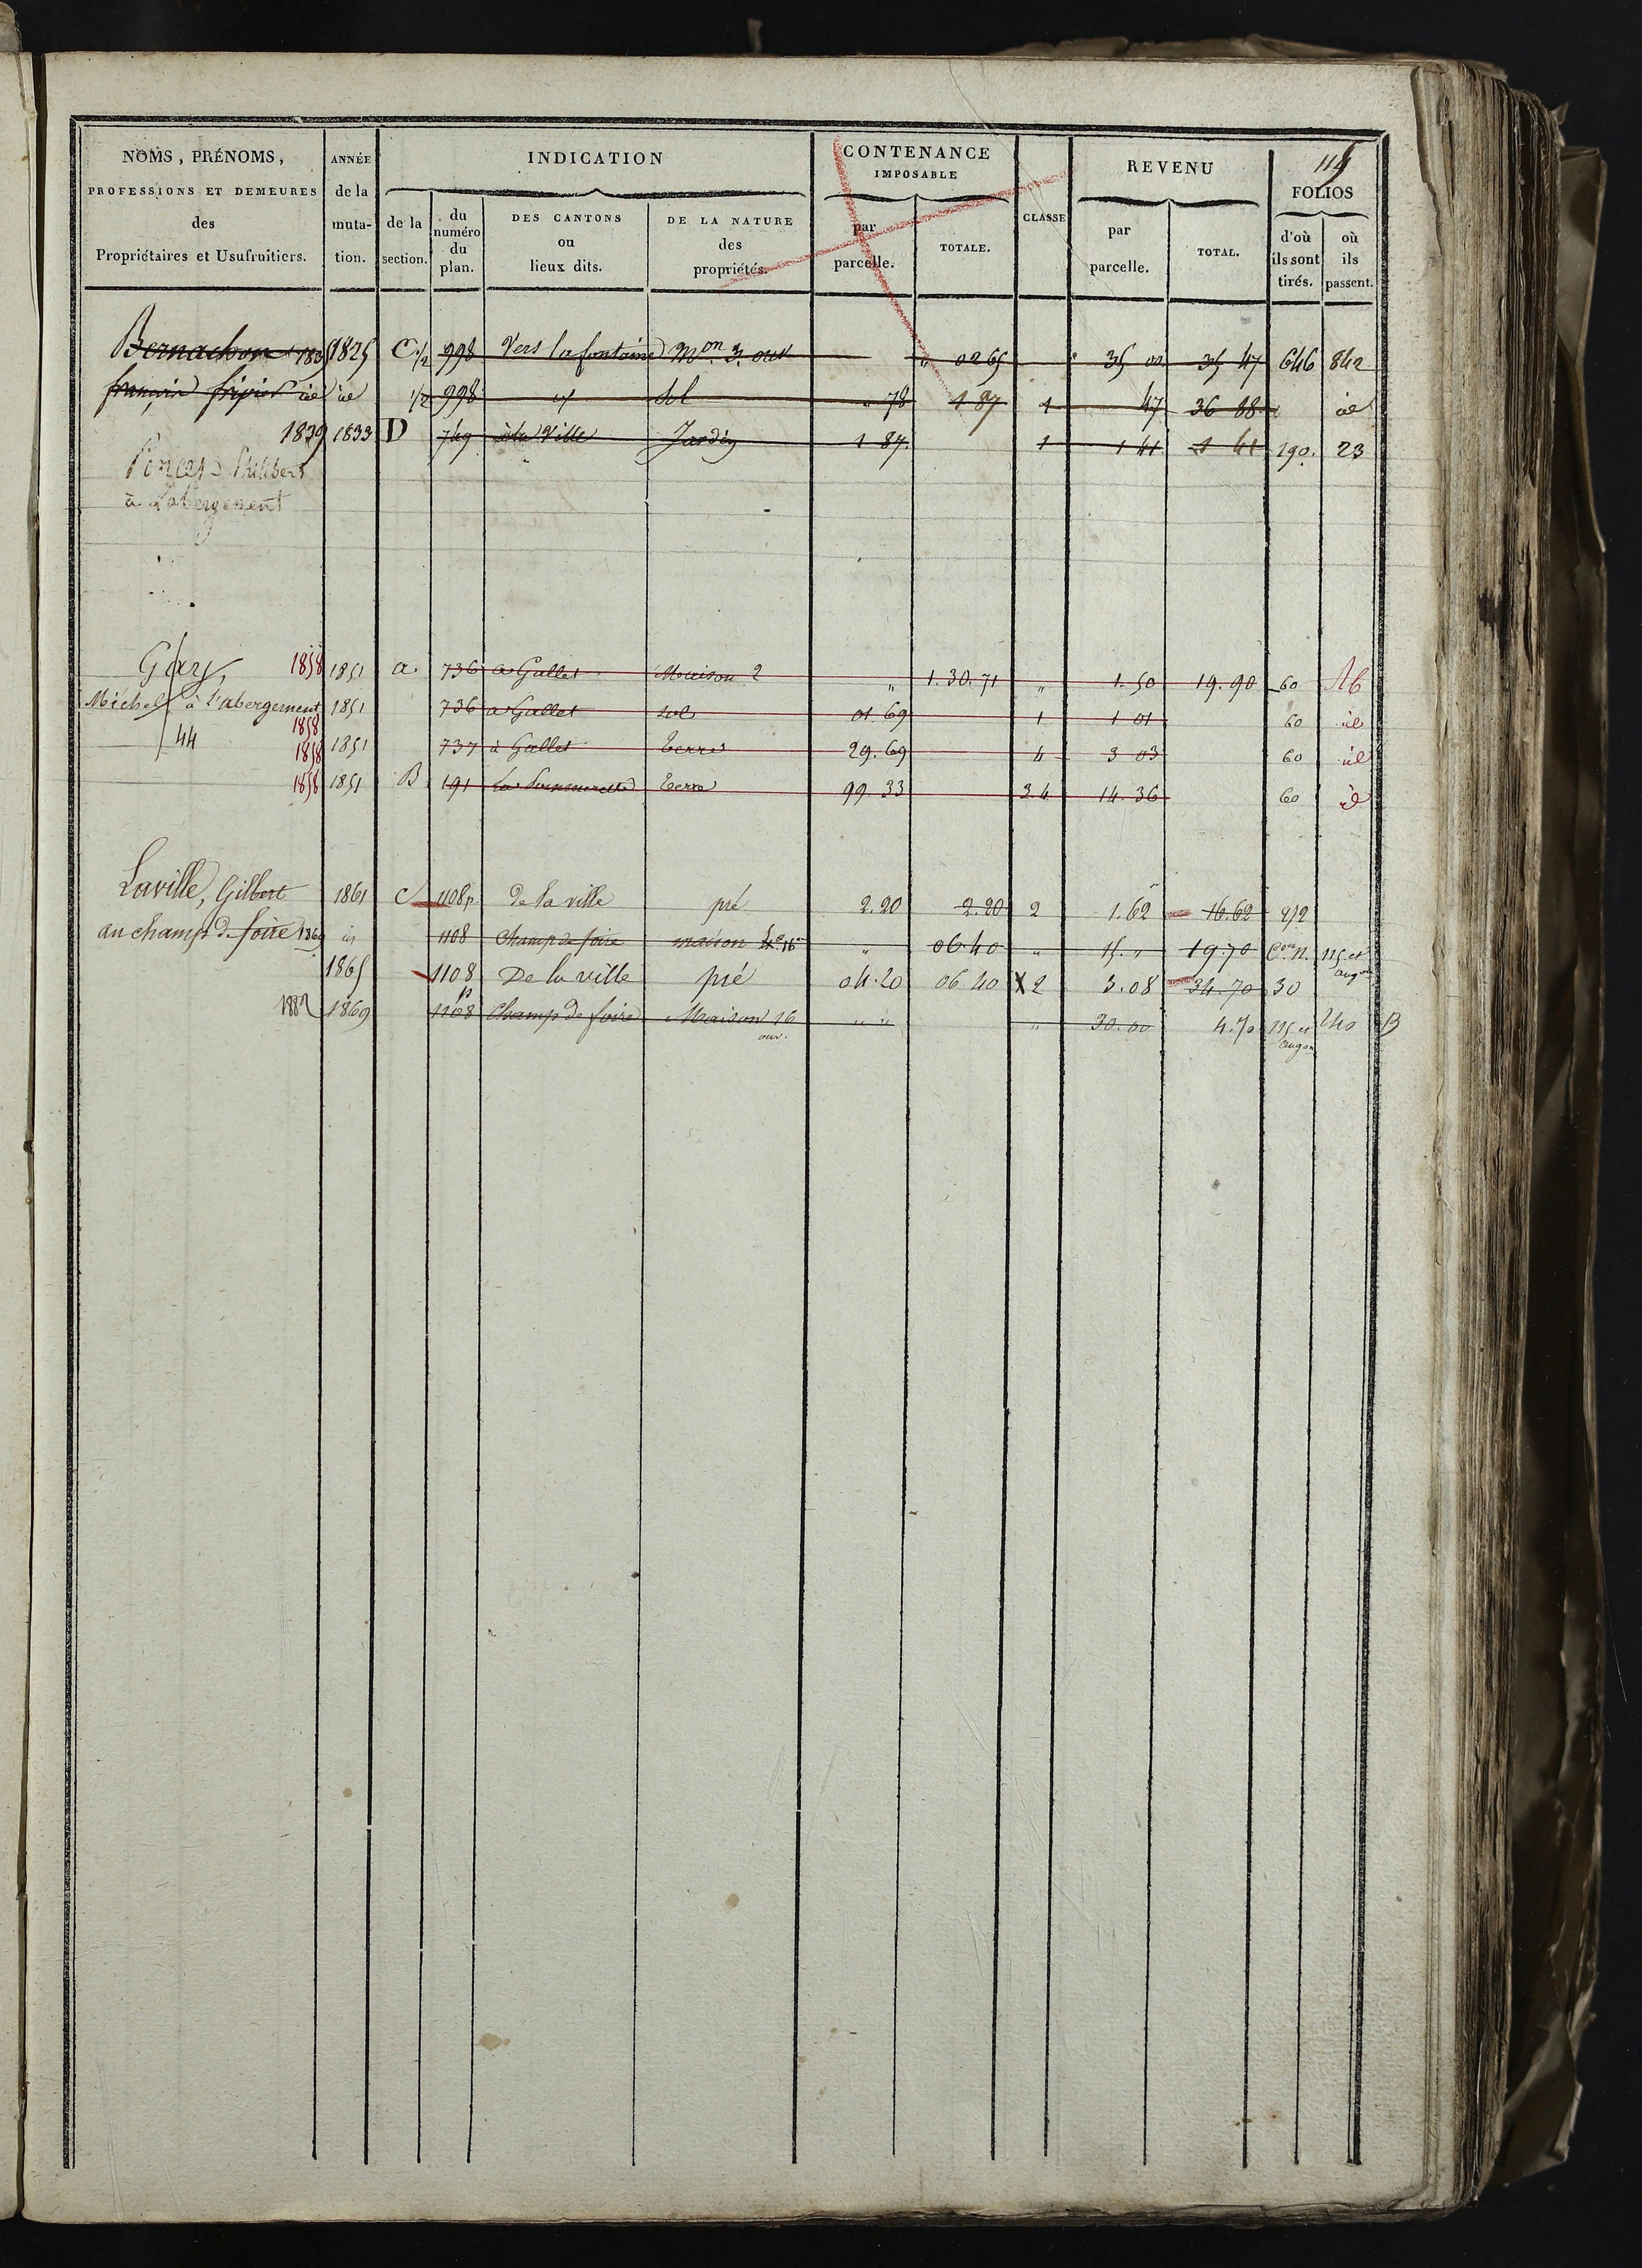 115
NOMS, PRÉNOMS, PROFESSIONS ET DEMEURES des Propriétaires et Usufruitiers.
ANNÉE de la muta- tion.
INDICATION
de la section.
du numéro du plan.
DES CANTONS ou lieux dits.
DE LA NATURE des propriétés.
CONTENANCE IMPOSABLE
par parcelle.
TOTALE.
CLASSE
REVENU
par parcelle.
TOTAL.
FOLIOS
d'où ils sont tirés.
où ils passent.
Bernachon 1835 1825 C 1/2 998 Vers la fontaine Mon 3 ouv " 02 65 35 00 35 47 646 842
françois fripier id id 1/2 998 id sol " 78 1 87 1 47 36 88 id
1839 1833 D 749 à la Ville Jardin 1 87 1 1 41 1 41 190. 23
Poncet Philibert
à Labergement
Gary, 1858 1851 a 736 a Gallet Maison 2 " 1.30.71 " 1.50 19.90 60
Michel à l'abergement 1851 736 a Gallet sol 01 69 1 1 01 60 id
1858
44 1858 1851 737 à Gallet Terre 29.69 4 3 03 60 id
1858 1851 B 191 Terre 99.33 3.4 14.36 60 id
Laville, Gilbert 1861 C 1108p de la ville pré 2.20 2.20 2 1.62 16.62 212
au champ de foire 1869 id 1108 Champ de foire maison " 06 40 " 15 " 19.70 Con n. 115 et augon
1865 1108 De la ville pré 04.20 06 40 X 2 3.08 34.70 30
1882 1869 1108p Champ de foire Maison 16 ouv. " " " 30.00 4.70 115 et augon 240 B